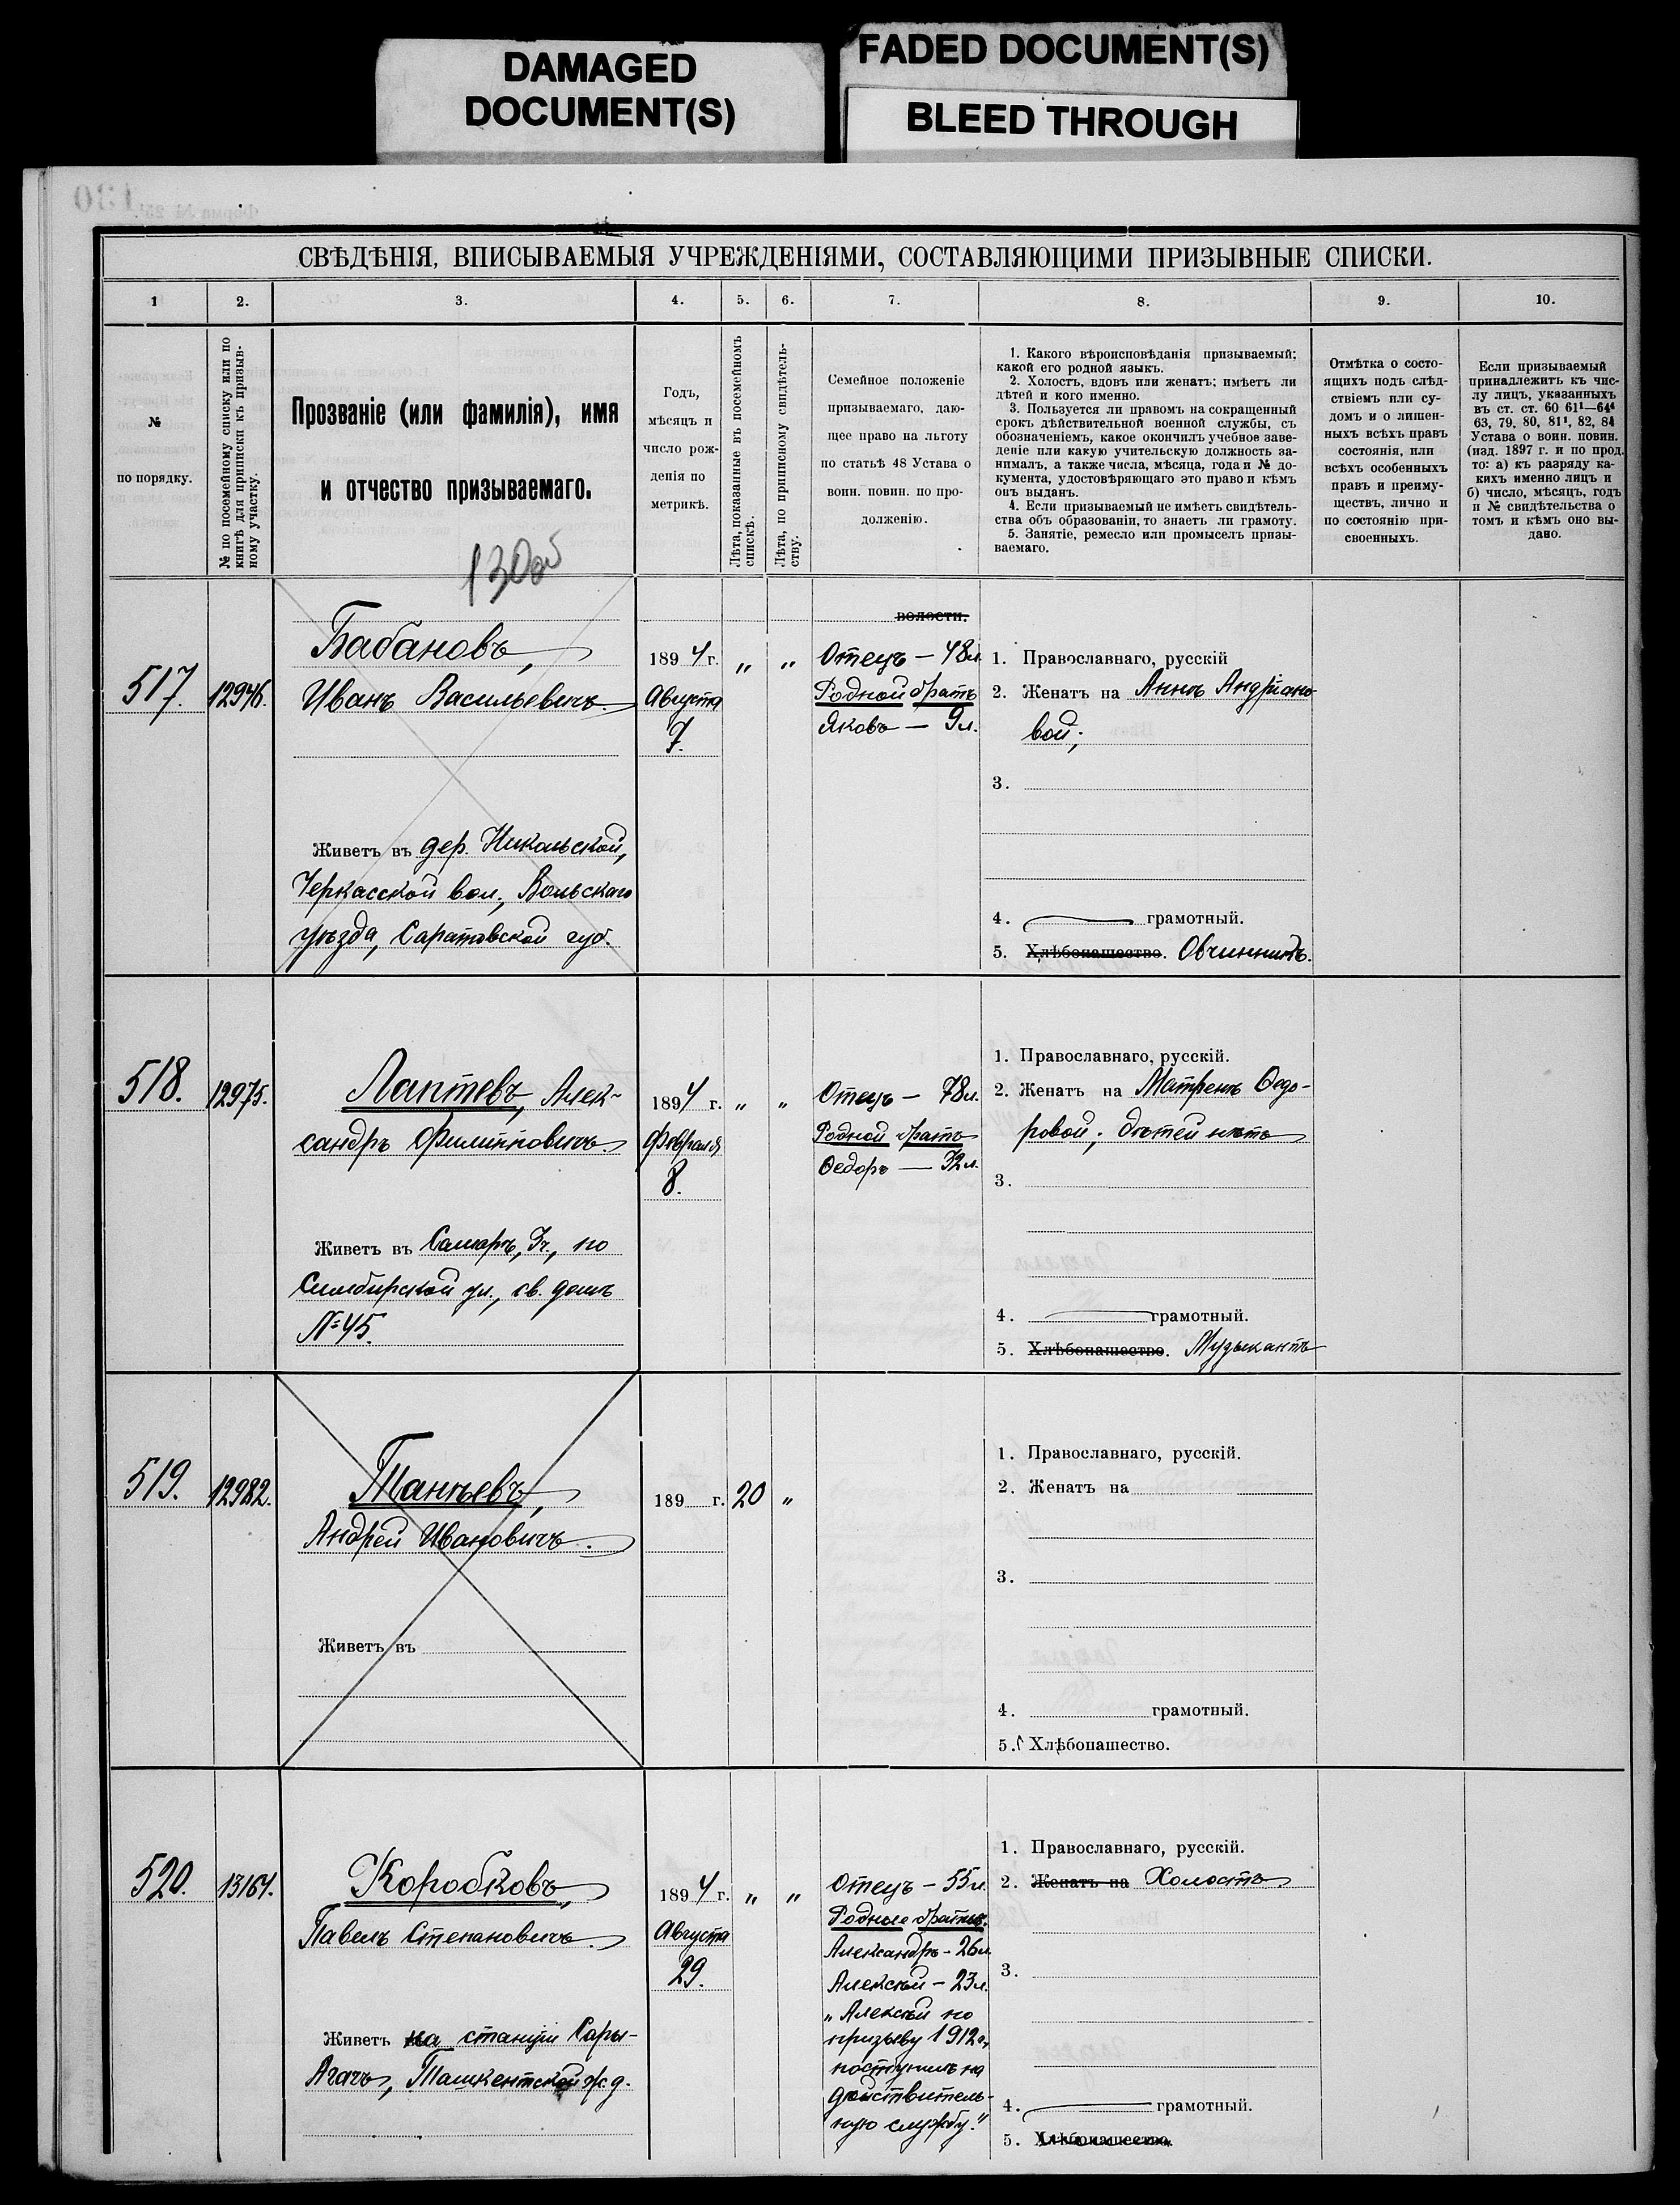 DAMAGED
DOCUMENT(S)
FADED DOCUMENT(S)
BLEED THROUGH
СВѢДѢНІЯ, ВПИСЫВАЕМЫЯ УЧРЕЖДЕНІЯМИ, СОСТАВЛЯЮЩИМИ ПРИЗЫВНЫЕ СПИСКИ.
1
2.
3.
4.
5.
6.
7.
8.
9.
10.
№
по порядку.
№ по посемейному списку или по
книгѣ для приписки къ призыв-
ному участку.
Прозваніе (или фамилія), имя
и отчество призываемаго.
130об
Годъ,
мѣсяцъ и
число рож-
денія по
метрикѣ.
Лѣта, показанные въ посемейномъ
спискѣ.
Лѣта, по приписному свидѣтель-
ству.
Семейное положеніе
призываемаго, даю-
щее право на льготу
по статьѣ 48 Устава о
воин. повин. по про-
долженію.
1. Какого вѣроисповѣданія призываемый;
какой его родной языкъ.
2. Холостъ, вдовъ или женатъ; имѣетъ ли
дѣтей и кого именно.
3. Пользуется ли правомъ на сокращенный
срокъ дѣйствительной военной службы, съ
обозначеніемъ, какое окончилъ учебное заве-
деніе или какую учительскую должность за-
нималъ, а также числа, мѣсяца, года и № до-
кумента, удостовѣряющаго это право и кѣмъ
онъ выданъ.
4. Если призываемый не имѣетъ свидѣтель-
ства объ образованіи, то знаетъ ли грамоту.
5. Занятіе, ремесло или промыселъ призы-
ваемаго.
Отмѣтка о состо-
ящихъ подъ слѣд-
ствіемъ или су-
домъ и о лишен-
ныхъ всѣхъ правъ
состоянія, или
всѣхъ особенныхъ
правъ и преиму-
ществъ, лично и
по состоянію при-
своенныхъ.
Если призываемый
принадлежитъ къ чис-
лу лицъ, указанныхъ
въ ст. ст. 60 61¹—64⁴
63, 79, 80, 81¹, 82, 84
Устава о воин. повин.
(изд. 1897 г. и по прод.
то: а) къ разряду ка-
кихъ именно лицъ и
б) число, мѣсяцъ, годъ
и № свидѣтельства о
томъ и кѣмъ оно вы-
дано.
517.
12946.
Бабановъ,
Иванъ Васильевичъ.
Живетъ въ дер. Никольской,
Черкасской вол., Вольскаго
уѣзда, Саратовской губ.
1894 г.
Августа
7.
„
„
волости.
Отецъ — 48 л.
Родной братъ
Яковъ — 9 л.
1. Православнаго, русскій
2. Женатъ на Аннѣ Андріано-
вой;
3.
4. грамотный.
5. Хлѣбопашество. Овчинникъ.
518.
12975.
Лаптевъ, Алек-
сандръ Филипповичъ.
Живетъ въ Самарѣ, 3 ч., по
Симбирской ул., св. домъ
№ 45.
1894 г.
Февраля
8.
„
„
Отецъ — 78 л.
Родной братъ
Ѳедоръ — 32 л.
1. Православнаго, русскій.
2. Женатъ на Матренѣ Ѳедо-
ровой; дѣтей нѣтъ
3.
4. грамотный.
5. Хлѣбопашество. Музыкантъ
519.
12982.
Танѣевъ,
Андрей Ивановичъ.
Живетъ въ
189 г.
20
„
1. Православнаго, русскій.
2. Женатъ на
3.
4. грамотный.
5. Хлѣбопашество.
520.
13164.
Коробковъ,
Павелъ Степановичъ.
Живетъ на станціи Сары-
Агачъ, Ташкентской ж. д.
1894 г.
Августа
29.
„
„
Отецъ — 55 л.
Родные братья:
Александръ — 26 л.
Алексѣй — 23 л.
„Алексѣй по
призыву 1912 г.
поступилъ на
дѣйствитель-
ную службу."
1. Православнаго, русскій.
2. Женатъ на Холостъ
3.
4. грамотный.
5. Хлѣбопашество.